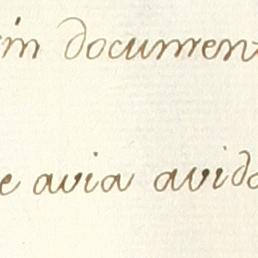 documen
avia avido